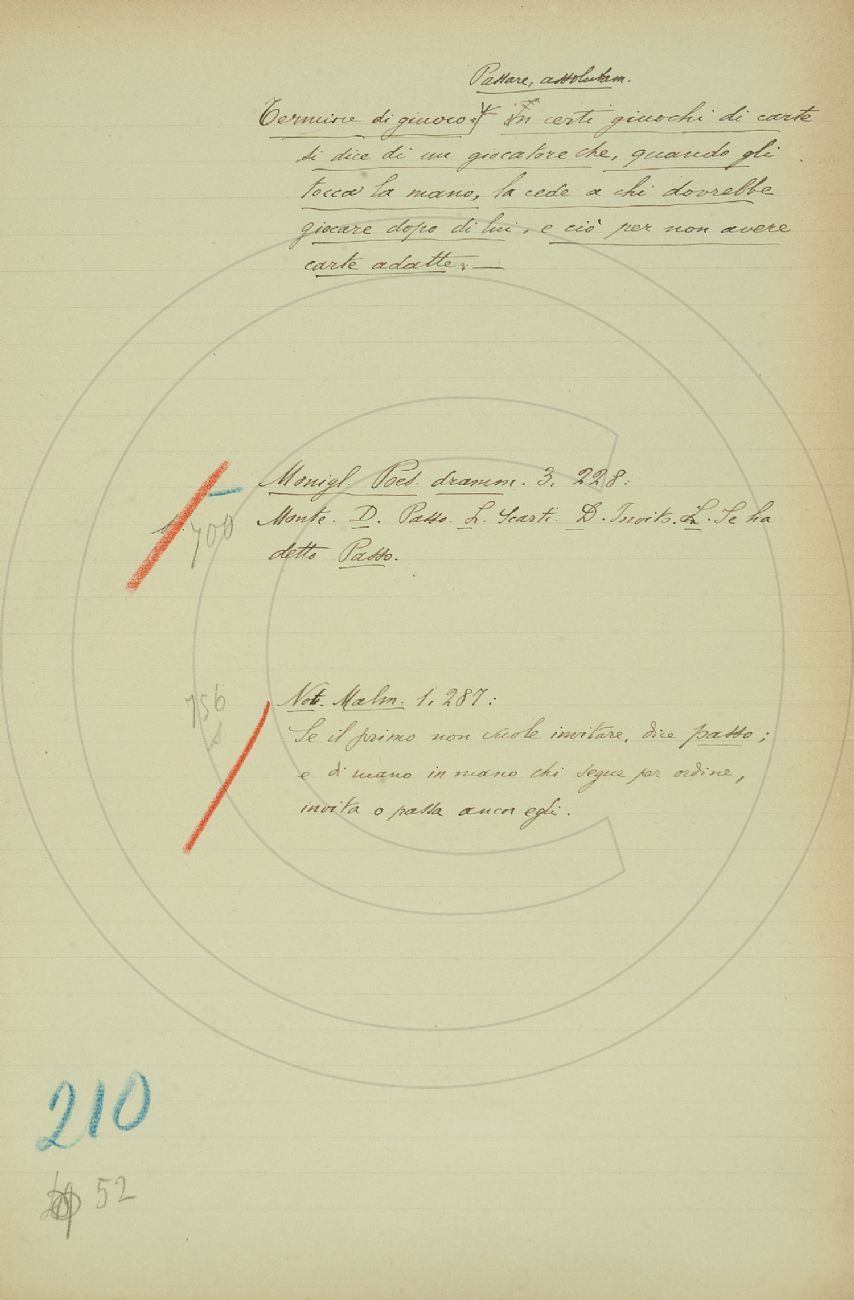 Passare, assolutam.
Termine di giuoco: In certi giuochi di carte
si dice di un giocatore che, quando gli
tocca la mano, la cede a chi dovrebbe
giocare dopo di lui, e ciò per non avere
carte adatte. —
Monigl. Poes. dramm. 3. 228:
700
Monte. D. Passo. L. Scarti. D. Invito. L. Se ha
detto Passo.
756
Not. Malm. 1. 287:
Se il primo non vuole invitare, dice passo;
e di mano in mano chi segue per ordine,
invita o passa ancor egli.
210
52